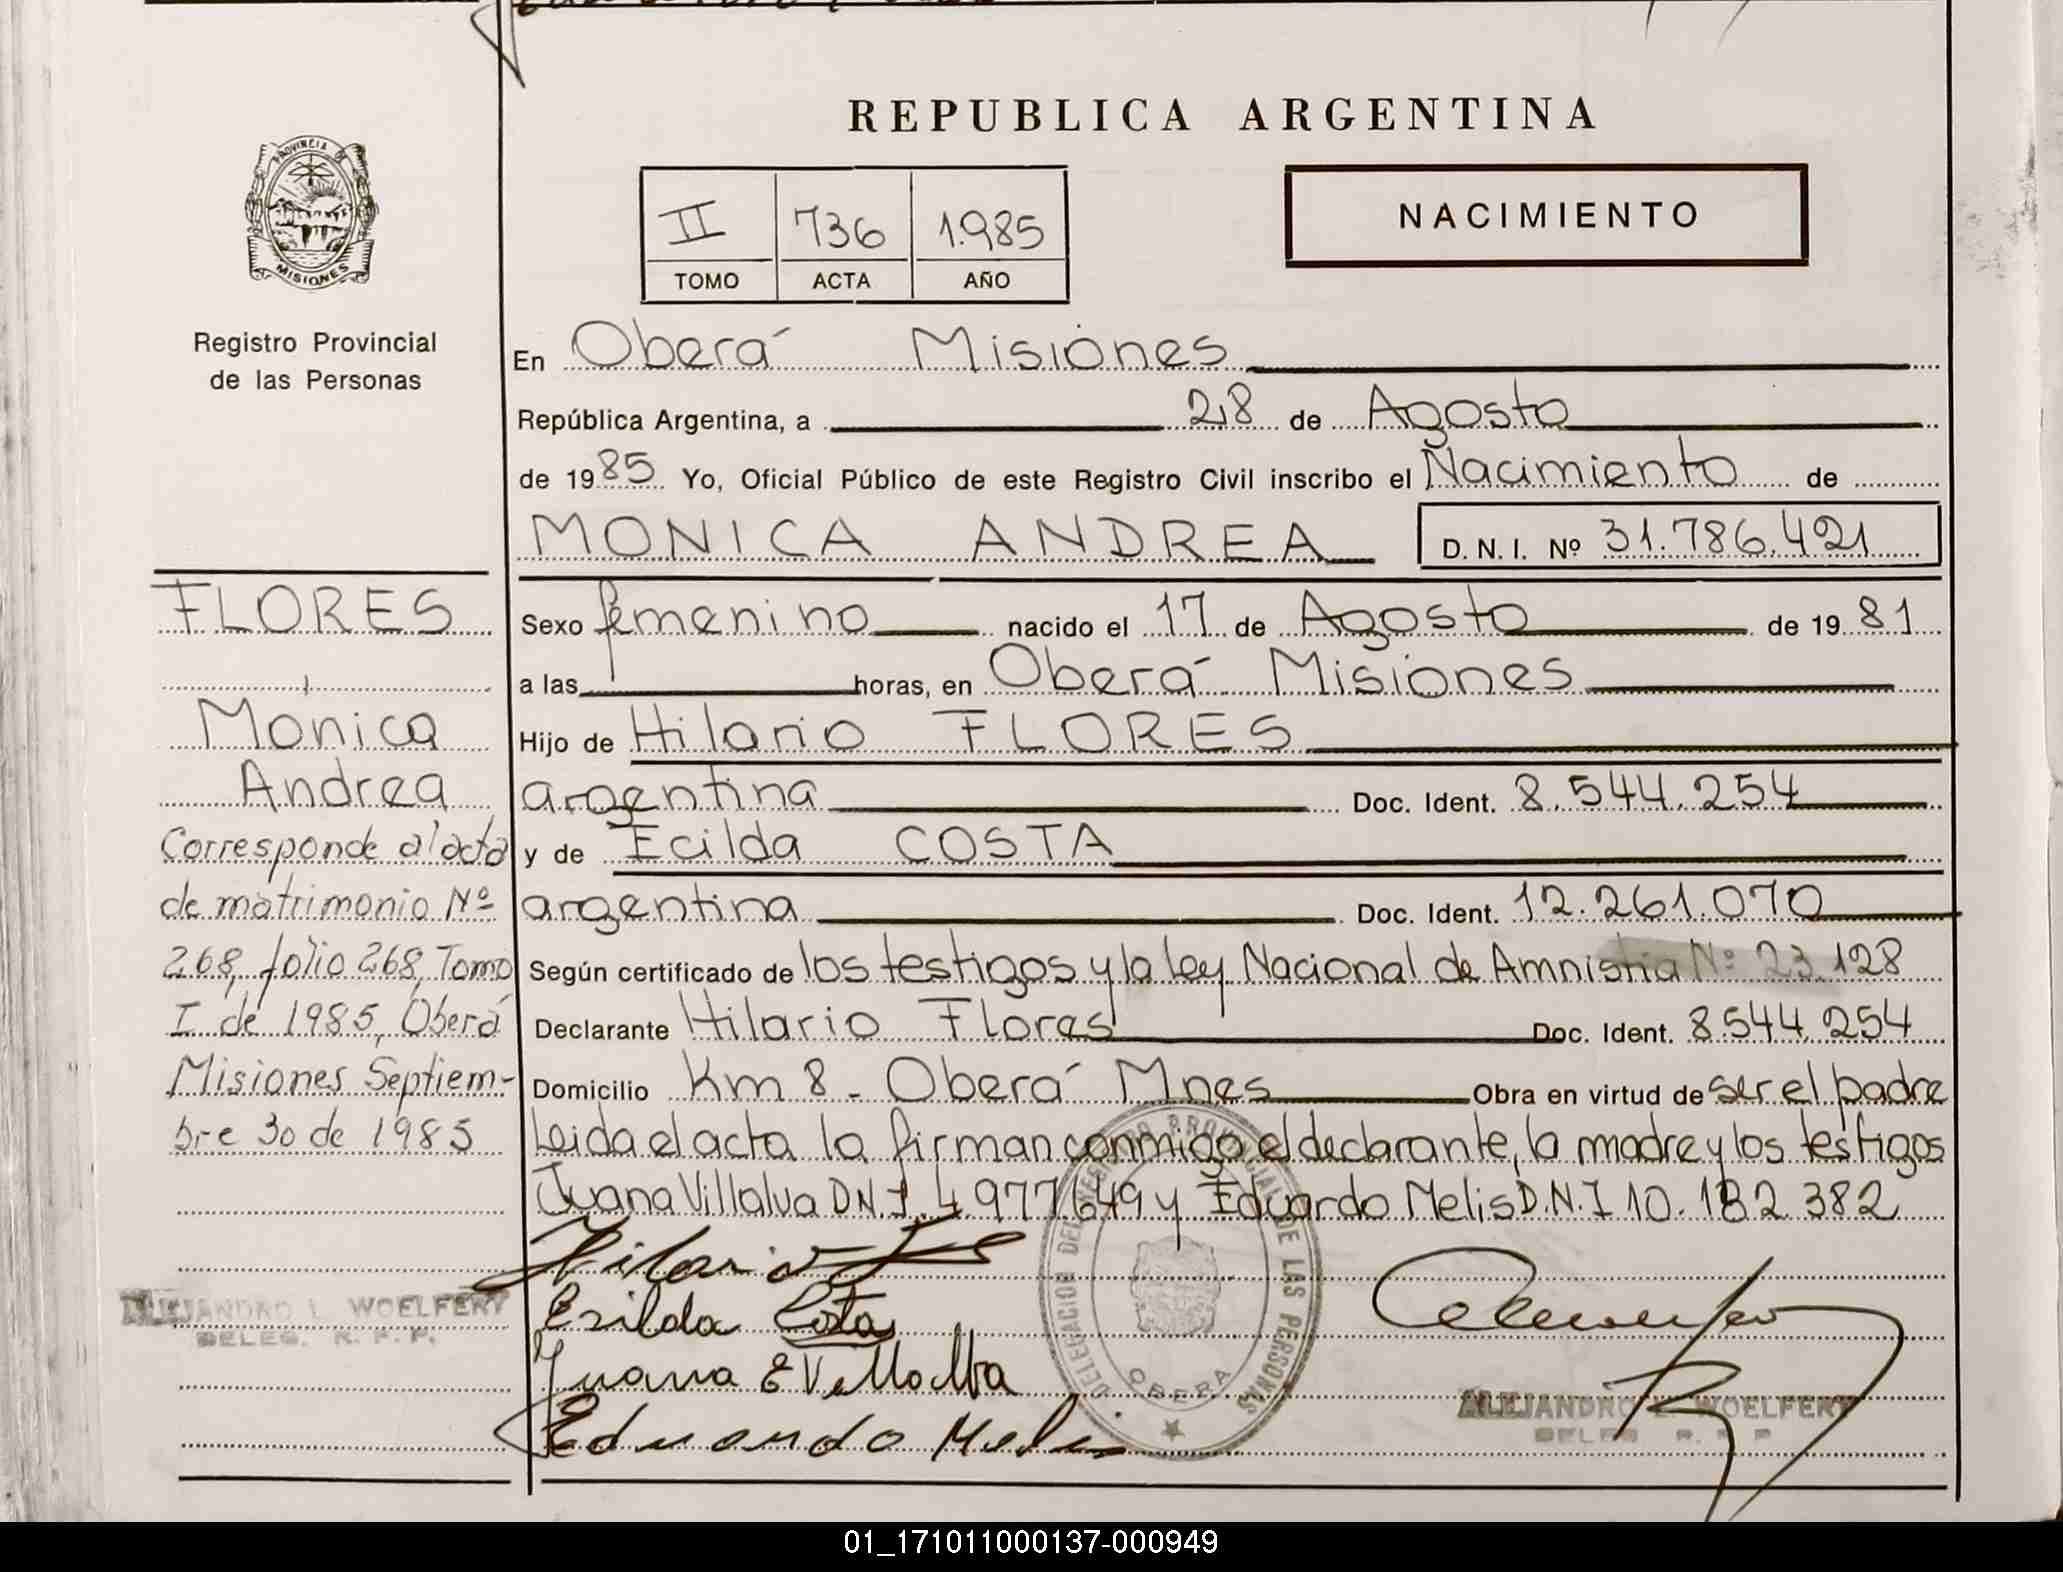 REPUBLICA ARGENTINA
PROVINCIA DE
MISIONES
Registro Provincial
de las Personas
II 736 1.985
TOMO ACTA AÑO
NACIMIENTO
En Oberá Misiones
República Argentina, a 28 de Agosto
de 1985 Yo, Oficial Público de este Registro Civil inscribo el Nacimiento de
MONICA ANDREA D. N. I. Nº 31.786.421
Sexo femenino nacido el 17 de Agosto de 1981
a las horas, en Oberá Misiones
Hijo de Hilario FLORES
argentina Doc. Ident. 8.544.254
y de Ecilda COSTA
argentina Doc. Ident. 12.261.070
Según certificado de los testigos y la ley Nacional de Amnistia Nº 23.128
Declarante Hilario Flores Doc. Ident. 8.544.254
Domicilio Km 8 - Oberá Mnes Obra en virtud de ser el padre
Leida el acta la firman conmigo el declarante, la madre y los testigos
Juana Villalva D.N.I. 4.977.649 y Eduardo Melis D.N.I 10.182.382
FLORES
Monica
Andrea
Corresponde al acta
de matrimonio Nº
268, folio 268, Tomo
I de 1985, Oberá
Misiones Septiem-
bre 30 de 1985
ALEJANDRO L. WOELFERT
DELEG. R. P. P.
Hilario
Ezilda Costa
Juana E Villalba
Eduardo Melis
DELEGACION DEL REGISTRO PROVINCIAL DE LAS PERSONAS
OBERA
ALEJANDRO L. WOELFERT
DELEG. R. P. P.
01_171011000137-000949